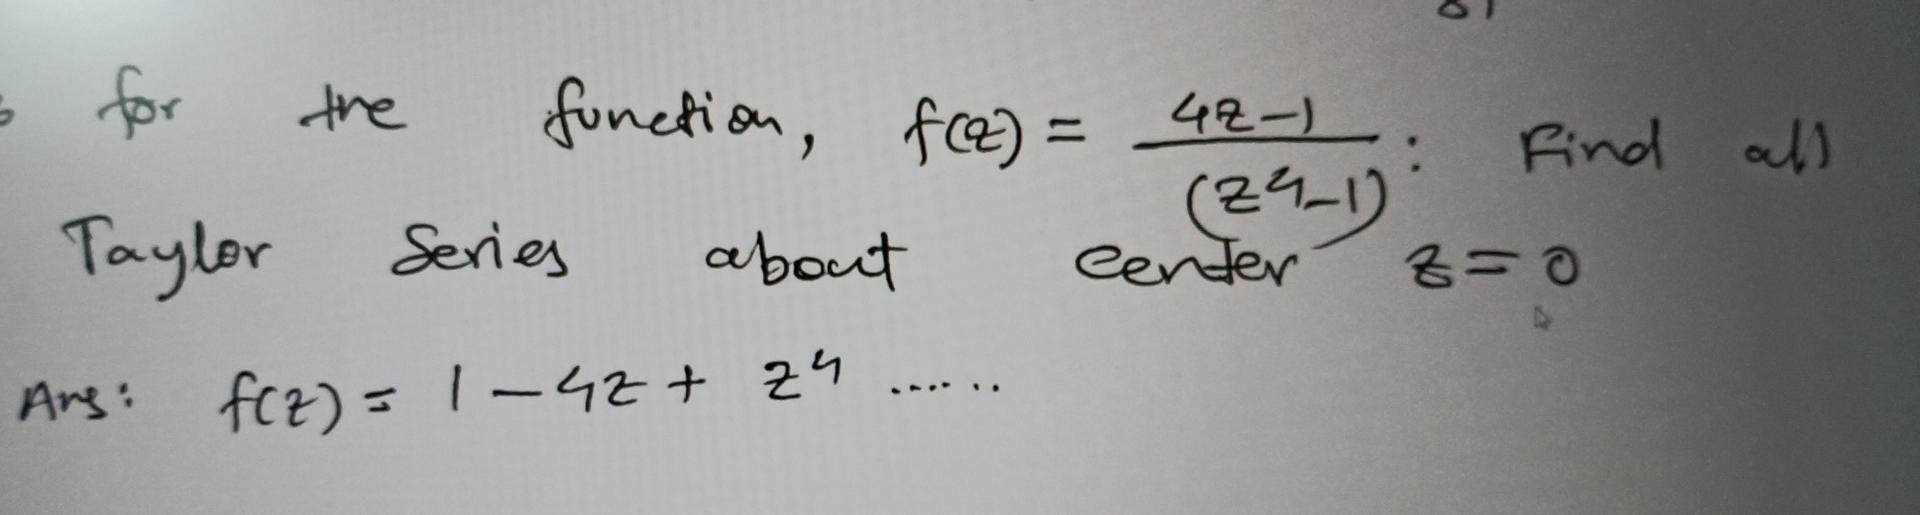 for the function, f(z) = 4z-1 / (z⁴-1) : Find all
Taylor Series about center z=0
Ans: f(z) = 1 - 4z + z⁴ ......